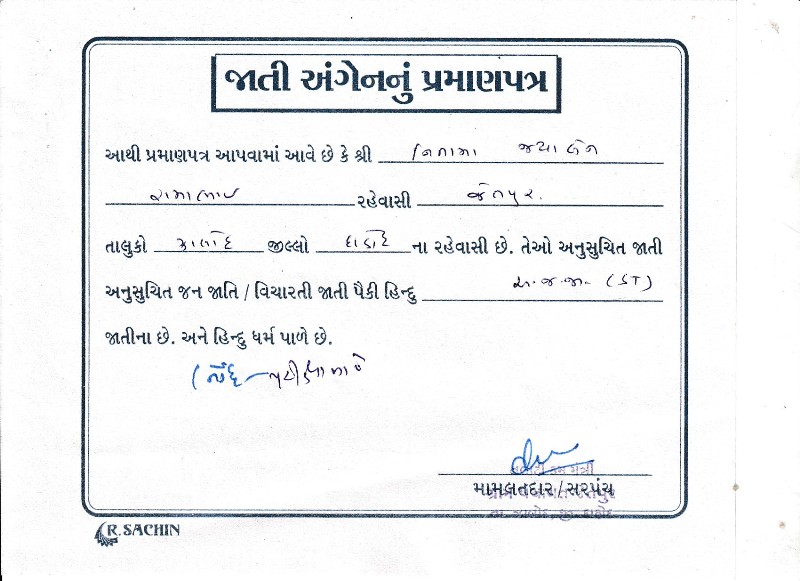 જાતી અંગેનનું પ્રમાણપત્ર
આથી પ્રમાણપત્ર આપવામાં આવે છે કે શ્રી નિનામા જયાબેન
રામાભાઇ રહેવાસી જેતપુર.
તાલુકો ઝાલોદ જીલ્લો દાહોદ ના રહેવાસી છે. તેઓ અનુસુચિત જાતી
અનુસુચિત જન જાતિ / વિચારતી જાતી પૈકી હિન્દુ અ.જ.જા. (ST)
જાતીના છે. અને હિન્દુ ધર્મ પાળે છે.
તલાટી કમ મંત્રી
મામલતદાર / સરપંચ
ગ્રામ પંચાયત જેતપુર
તા. ઝાલોદ, જી. દાહોદ
R. SACHIN